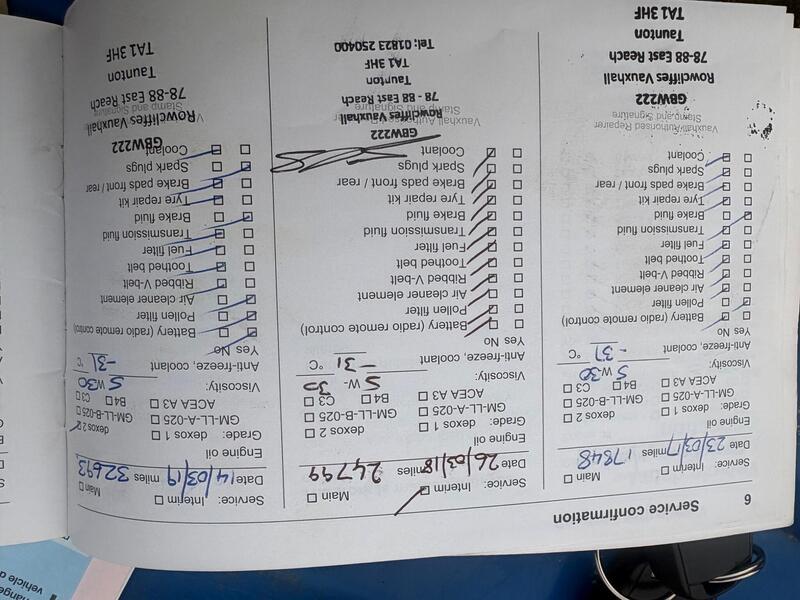 6 Service confirmation
Service: ☐ Interim ☐ Main
Date 23/03/17 miles 17848
Engine oil
Grade: ☐ dexos 1 ☐ dexos 2
☐ GM-LL-A-025 ☐ GM-LL-B-025
☐ ACEA A3 ☐ B4 ☐ C3
Viscosity: 5W30
Anti-freeze, coolant -37 °C
Yes No
Battery (radio remote control)
Pollen filter
Air cleaner element
Ribbed V-belt
Toothed belt
Fuel filter
Transmission fluid
Brake fluid
Tyre repair kit
Brake pads front / rear
Spark plugs
Coolant
Vauxhall Authorised Repairer
Stamp and Signature
GBW222
Rowcliffes Vauxhall
78-88 East Reach
Taunton
TA1 3HF
Service: ☐ Interim ☐ Main
Date 26/03/18 miles 24799
Engine oil
Grade: ☐ dexos 1 ☐ dexos 2
☐ GM-LL-A-025 ☐ GM-LL-B-025
☐ ACEA A3 ☐ B4 ☐ C3
Viscosity: 5W-30
Anti-freeze, coolant -31 °C
Yes No
Battery (radio remote control)
Pollen filter
Air cleaner element
Ribbed V-belt
Toothed belt
Fuel filter
Transmission fluid
Brake fluid
Tyre repair kit
Brake pads front / rear
Spark plugs
Coolant
GBW222
Vauxhall
Rowcliffes Vauxhall
Stamp and Signature
78 - 88 East Reach
Taunton
TA1 3HF
Tel: 01823 250400
Service: ☐ Interim ☐ Main
Date 14/03/19 miles 32693
Engine oil
Grade: ☐ dexos 1 ☐ dexos 2
☐ GM-LL-A-025 ☐ GM-LL-B-025
☐ ACEA A3 ☐ B4 ☐ C3
Viscosity: 5W30
Anti-freeze, coolant -31 °C
Yes No
Battery (radio remote control)
Pollen filter
Air cleaner element
Ribbed V-belt
Toothed belt
Fuel filter
Transmission fluid
Brake fluid
Tyre repair kit
Brake pads front / rear
Spark plugs
Coolant
GBW222
Rowcliffes Vauxhall
Stamp and Signature
78-88 East Reach
Taunton
TA1 3HF
vehicle